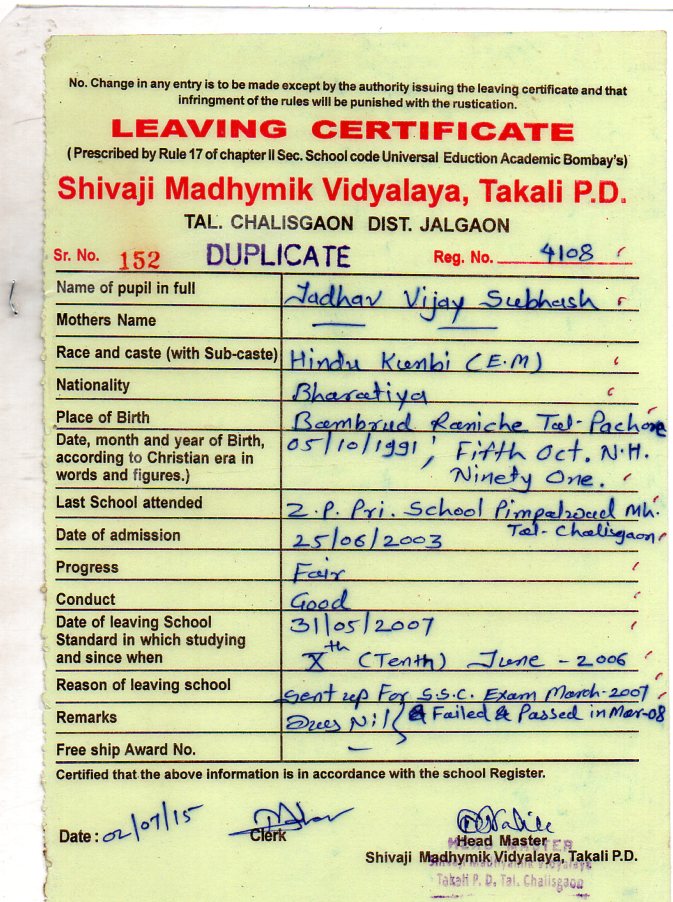 No. Change in any entry is to be made except by the authority issuing the leaving certificate and that
infringment of the rules will be punished with the rustication.
LEAVING CERTIFICATE
( Prescribed by Rule 17 of chapter II Sec. School code Universal Eduction Academic Bombay's)
Shivaji Madhymik Vidyalaya, Takali P.D.
TAL. CHALISGAON DIST. JALGAON
Sr. No. 152 DUPLICATE Reg. No. 4108
Name of pupil in full Jadhav Vijay Subhash
Mothers Name —— ——
Race and caste (with Sub-caste) Hindu Kunbi (E.M)
Nationality Bharatiya
Place of Birth Bambrud Raniche Tal- Pachore
Date, month and year of Birth, 05/10/1991, Fifth Oct. N.H.
according to Christian era in Ninety One.
words and figures.)
Last School attended Z.P. Pri. School Pimpalwad Mh.
Tal- Chalisgaon
Date of admission 25/06/2003
Progress Fair
Conduct Good
Date of leaving School 31/05/2007
Standard in which studying Xth (Tenth) June - 2006
and since when
Reason of leaving school Sent up For S.S.C. Exam March-2007
Remarks Dues Nil & Failed & Passed in Mar-08
Free ship Award No. —
Certified that the above information is in accordance with the school Register.
Date : 02/07/15 Clerk
Head Master
HEAD MASTER
Shivaji Madhymik Vidyalaya, Takali P.D.
Shivaji Madhyamik Vidyalaya
Takali P. D, Tal. Chalisgaon